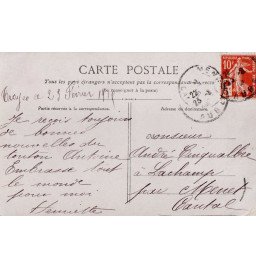 CARTE POSTALE
Tous les pays étrangers n'acceptent pas la correspondance
au recto
le 23 Février
Partie réservée à la correspondance.
Adresse du destinataire.
Je reçois toujours
de bonnes
nouvelles du
tonton Antoine
Embrasse tout
le monde
pour moi
Henriette
Monsieur
André
à Lachamp
par Menet
Cantal